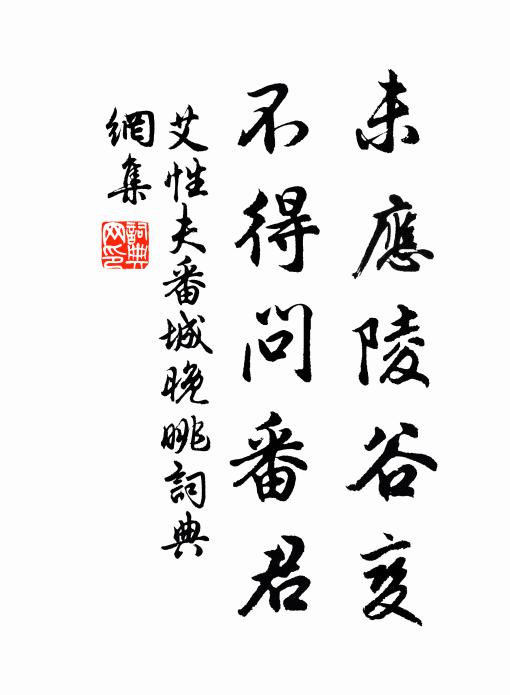 未應陵谷变
不得問番君
艾性夫番城晚眺詞典
網集
詞典
网印